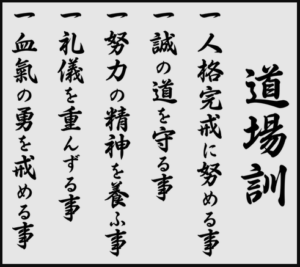 道場訓
一 人格完成に努める事
一 誠の道を守る事
一 努力の精神を養ふ事
一 礼儀を重んずる事
一 血氣の勇を戒める事